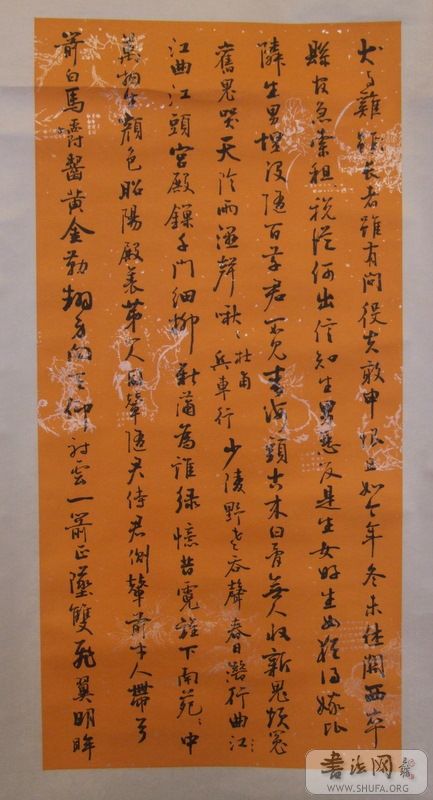 犬与雞長者雖有問役夫敢申恨且如今年冬未休關西卒
縣官急索租、税從何出信知生男惡反是生女好生女猶得嫁比
隣生男埋没隨百草君不見青海頭古来白骨無人收新鬼煩冤
舊鬼哭天陰雨濕聲啾、杜甫
兵車行
少陵野老吞聲春日潛行曲江、
江曲江頭宮殿鎖千門細柳新蒲為誰緑憶昔霓旌下南苑、中
萬物生顔色昭陽殿裏第一人同輦隨君侍君側輦前才人帶弓
箭白馬嚼齧黄金勒翻身向天仰射雲一箭正墜雙飛翼明眸
書法网
WWW.SHUFA.ORG